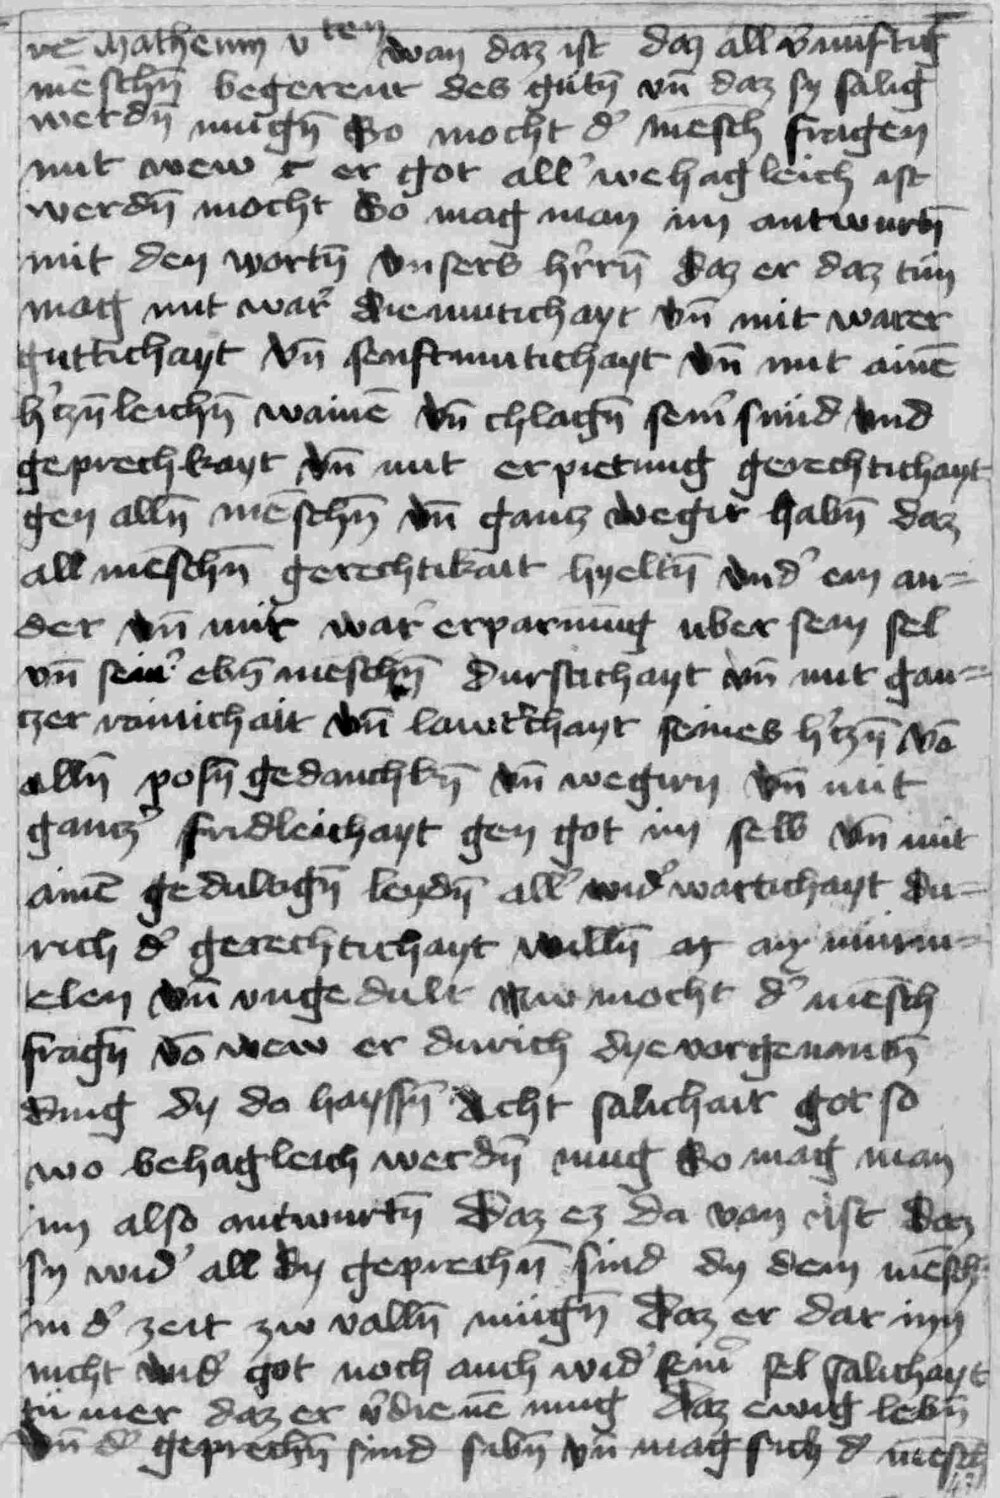 re Matheum v ten wan daz ist daz all v̄nuftig
mēschn̄ begerent des gutn̄ vn̄ daz sy salig
werdn̄ mugn̄ So mocht d' mēsch fragen
mit wew er got all' wehagleich ist
werdn̄ mocht So mag man im antwurtn̄
mit den wortn̄ vnsers h'rrn̄ daz er daz tün
mag mit war' diemutichayt vn̄ mit warer
guttichayt vn̄ senftmutichayt vn̄ mit ainē
h'tzn̄leichn̄ wainē vn̄ chlagn̄ sein' sünd vnd
geprechkayt vn̄ mit erpietung gerechtichayt
gen alln̄ mēschn̄ vn̄ gantz wegir habn̄ daz
all mēschn̄ gerechtikait hyeltn̄ vnd' ein an=
der vn̄ mit war' erparmūg uber sein sel
vn̄ sein' ebn̄ meschn̄ durstichayt vn̄ mit gan=
tzer rainichait vn̄ lawt'chayt seines h'tzn̄ vō
alln̄ posn̄ gedanchkn̄ vn̄ wegirn vn̄ mit
gantz' fridleichayt gen got im selb vn̄ mit
ainē geduldign̄ leydn̄ all' wid'wartichayt du=
rich d' gerechtichayt willn̄ an murm=
elen vn̄ vngedult Nw mocht d' mēsch
fragn̄ vō wew er durich dye vorgenantn̄
ding dy do hayssn̄ Acht salichait got so
wo behagleich werdn̄ mug So mag man
im also antwurtn̄ Daz ez da von ist Daz
sy wid' all dy geprechn̄ sind dy dem mēsch
in d' zeit zw valln̄ mügn̄ Daz er dar inn
nicht wid' got noch auch wid' sein' sel salichayt
tü mer daz er v'dienē mug Daz ewig lebn̄
vn̄ d' geprechn̄ sind sibn̄ vn̄ mag sich d' mēsch